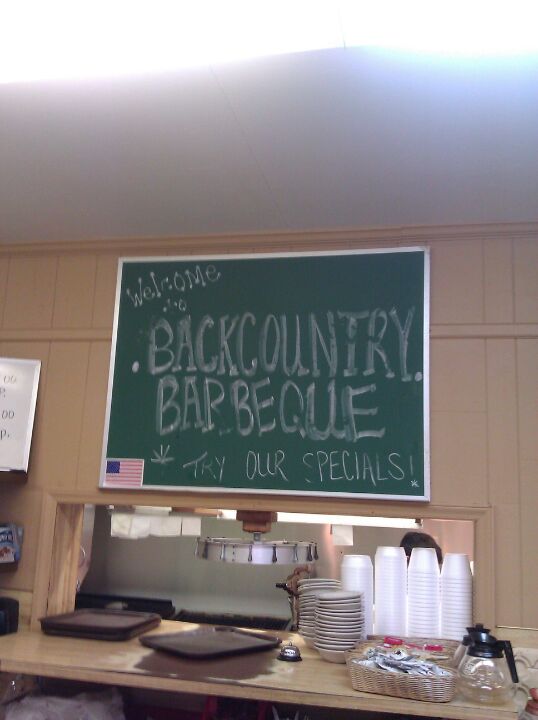 Welcome
to
BACKCOUNTRY
BARBEQUE
TRY OUR SPECIALS!
00
P.
00
P.